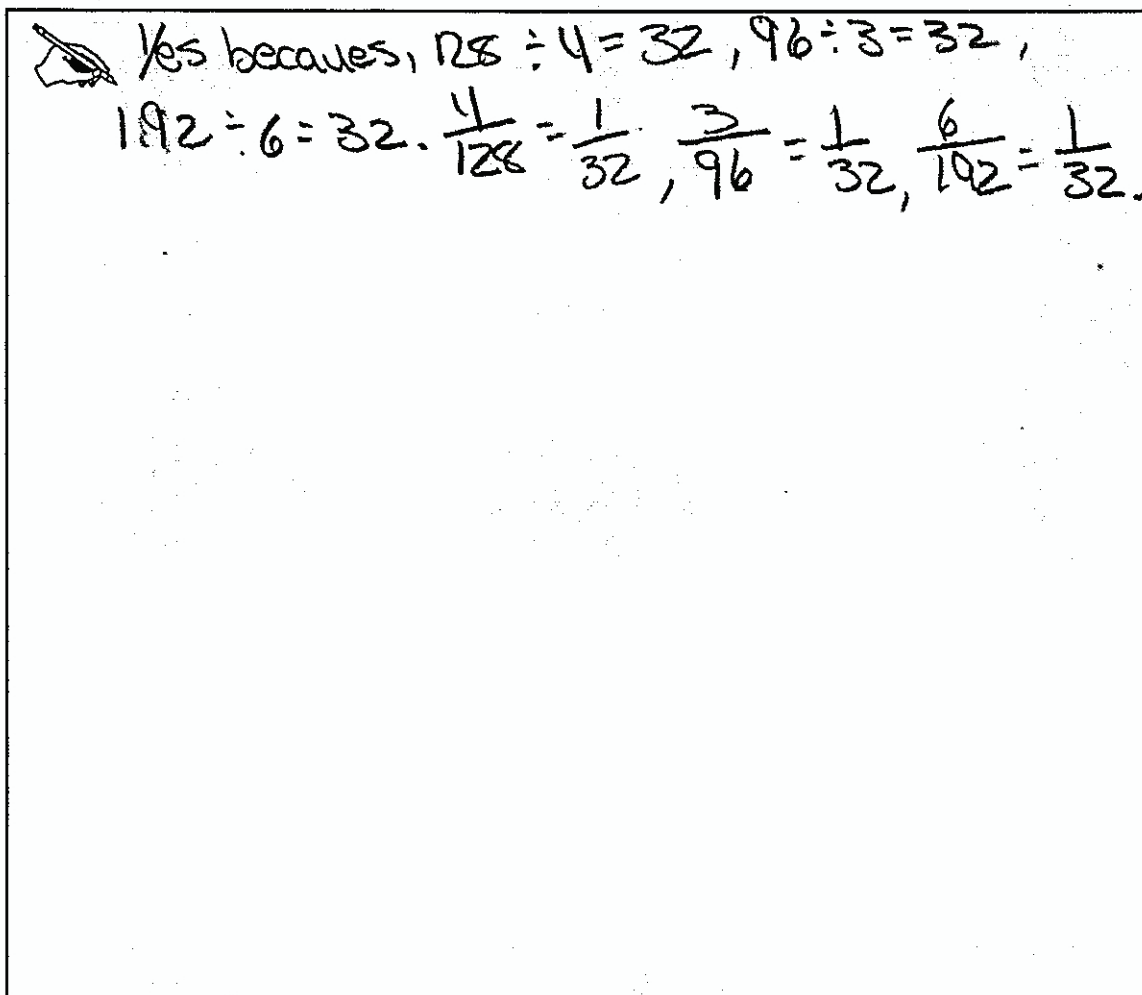 Yes becaues, 128 ÷ 4 = 32, 96 ÷ 3 = 32,
192 ÷ 6 = 32. 4/128 = 1/32, 3/96 = 1/32, 6/192 = 1/32.